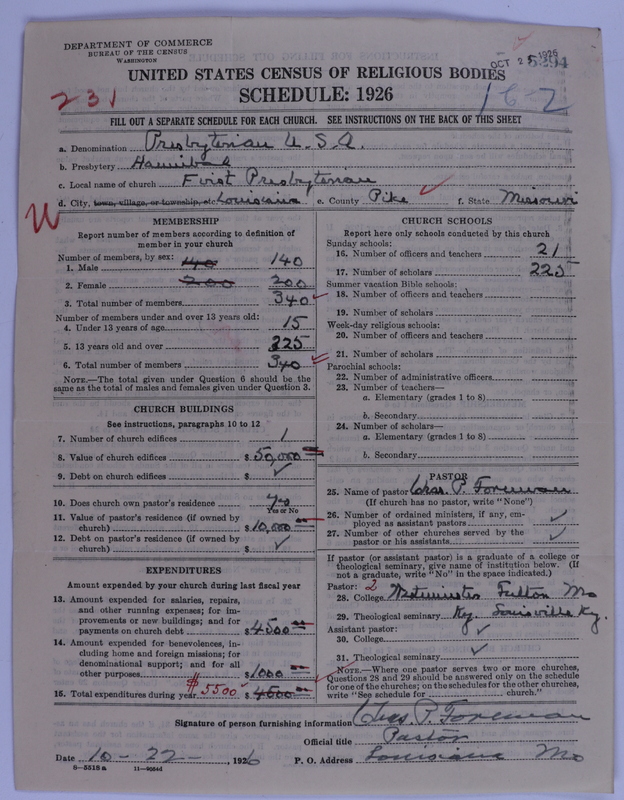 DEPARTMENT OF COMMERCE
BUREAU OF THE CENSUS
WASHINGTON
OCT 2 1926
UNITED STATES CENSUS OF RELIGIOUS BODIES
231
SCHEDULE: 1926
16-2
FILL OUT A SEPARATE SCHEDULE FOR EACH CHURCH. SEE INSTRUCTIONS ON THE BACK OF THIS SHEET
a. Denomination Presbyterian U.S.A.
b. Presbytery Hannibal
c. Local name of church First Presbyterian
d. City, town, village, or township, etc Louisiana e. County Pike f. State Missouri
W
MEMBERSHIP
Report number of members according to definition of
member in your church
Number of members, by sex:
1. Male 140 140
2. Female 200 200
3. Total number of members 340
Number of members under and over 13 years old:
4. Under 13 years of age 15
5. 13 years old and over 325
6. Total number of members 340
NOTE.—The total given under Question 6 should be the
same as the total of males and females given under Question 3.
CHURCH BUILDINGS
See instructions, paragraphs 10 to 12
7. Number of church edifices 1
8. Value of church edifices $ 50,000
9. Debt on church edifices $ ✓
10. Does church own pastor's residence Yes
Yes or No
11. Value of pastor's residence (if owned by
church) $ 10,000
12. Debt on pastor's residence (if owned by
church) $ ✓
EXPENDITURES
Amount expended by your church during last fiscal year
13. Amount expended for salaries, repairs,
and other running expenses; for im-
provements or new buildings; and for
payments on church debt $ 4500
14. Amount expended for benevolences, in-
cluding home and foreign missions; for
denominational support; and for all
other purposes $ 1000
15. Total expenditures during year $5500 $ 4500
CHURCH SCHOOLS
Report here only schools conducted by this church
Sunday schools:
16. Number of officers and teachers 21
17. Number of scholars 225
Summer vacation Bible schools:
18. Number of officers and teachers
19. Number of scholars
Week-day religious schools:
20. Number of officers and teachers
21. Number of scholars
Parochial schools:
22. Number of administrative officers
23. Number of teachers—
a. Elementary (grades 1 to 8)
b. Secondary
24. Number of scholars—
a. Elementary (grades 1 to 8)
b. Secondary
PASTOR
25. Name of pastor Chas. P. Foreman
(If church has no pastor, write "None")
26. Number of ordained ministers, if any, em-
ployed as assistant pastors ✓
27. Number of other churches served by the
pastor or his assistants ✓
If pastor (or assistant pastor) is a graduate of a college or
theological seminary, give name of institution below. (If
not a graduate, write "No" in the space indicated.)
Pastor: 2
28. College Westminster Fulton Mo
29. Theological seminary Ky. Louisville Ky.
Assistant pastor:
30. College ✓
31. Theological seminary ✓
NOTE.—Where one pastor serves two or more churches,
Questions 28 and 29 should be answered only on the schedule
for one of the churches; on the schedules for the other churches,
write "See schedule for church."
Signature of person furnishing information Chas. P. Foreman
Official title Pastor
Date 10-22-, 1926 P. O. Address Louisiana Mo
8—5518a 11—9054d